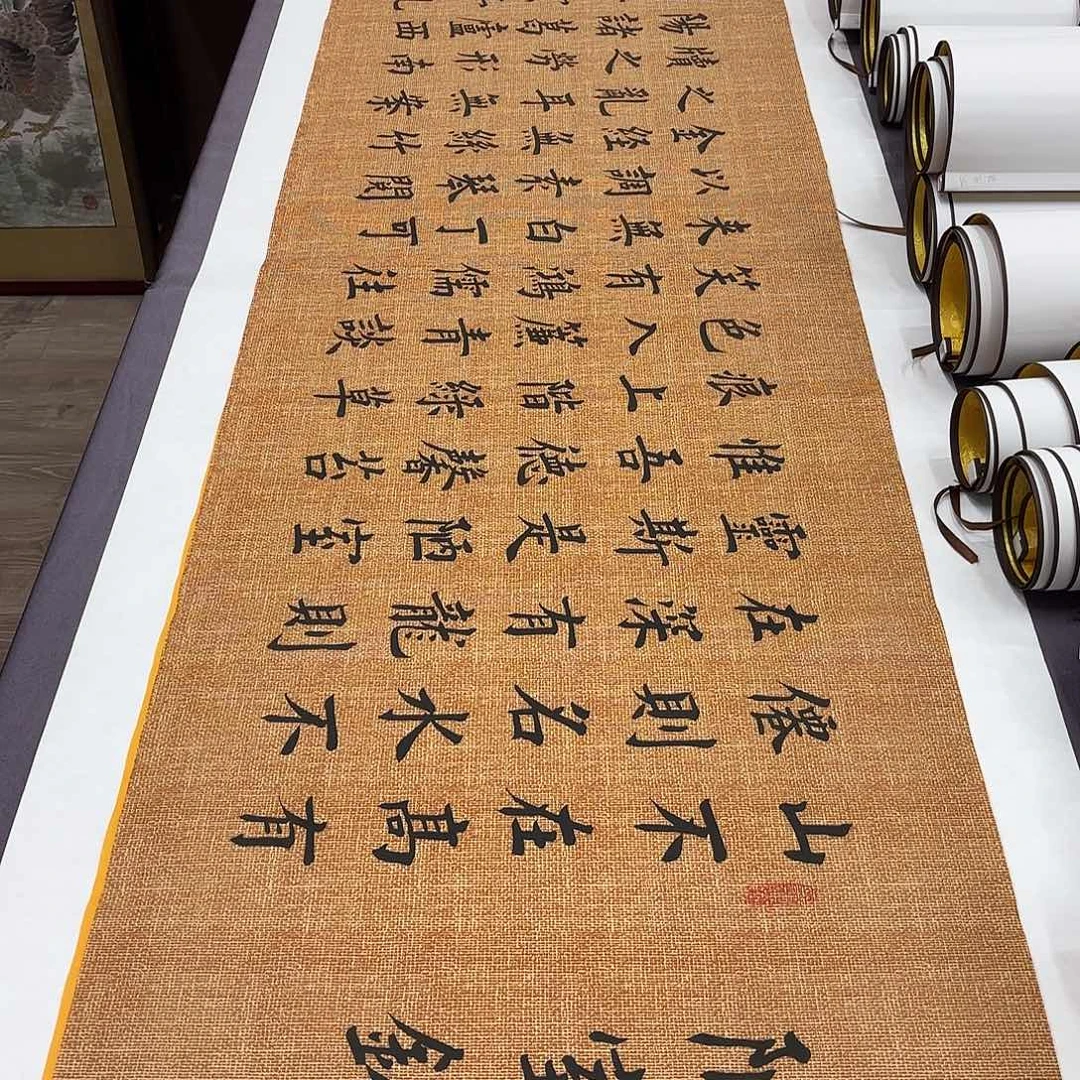 陋室銘
山不在髙有
僊則名水不
在深有龍則
靈斯是陋室
惟吾德馨苔
痕上階綠草
色入簾青談
笑有鴻儒往
来無白丁可
以調素琴閱
金經無絲竹
之亂耳無案
牘之勞形南
陽諸葛廬西